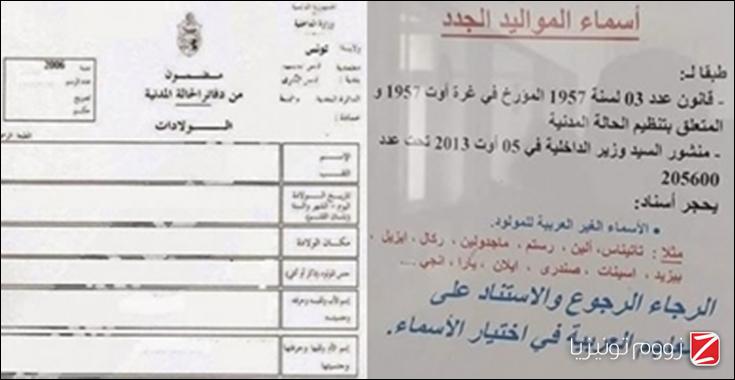 الجمهورية التونسية
وزارة الداخلية
ولاية تونس
سنة 2006
مضمون
من دفاتر الحالة المدنية
الولادات
الإسم
اللقب
تاريخ الولادة
اليوم - الشهر والسنة
(بلسان القلم)
مكان الولادة
إسم الأب ولقبه وحرفته
وجنسيته
إسم الأم ولقبها وحرفتها
وجنسيتها
أسماء المواليد الجدد
طبقا لـ:
- قانون عدد 03 لسنة 1957 المؤرخ في غرة أوت 1957 و
المتعلق بتنظيم الحالة المدنية
- منشور السيد وزير الداخلية في 05 أوت 2013 تحت عدد
205600
يحجر أسناد:
• الأسماء الغير العربية للمولود.
مثلا : تاتيناس، ألين ، رستم ، ماجدولين ، ركال ، ايزيل ،
بيزيد ، اسينات ، صندرى ، ايلان ، يارا ، انجي ....
الرجاء الرجوع والاستناد على
العربية في اختيار الأسماء.
زووم تونيزيا